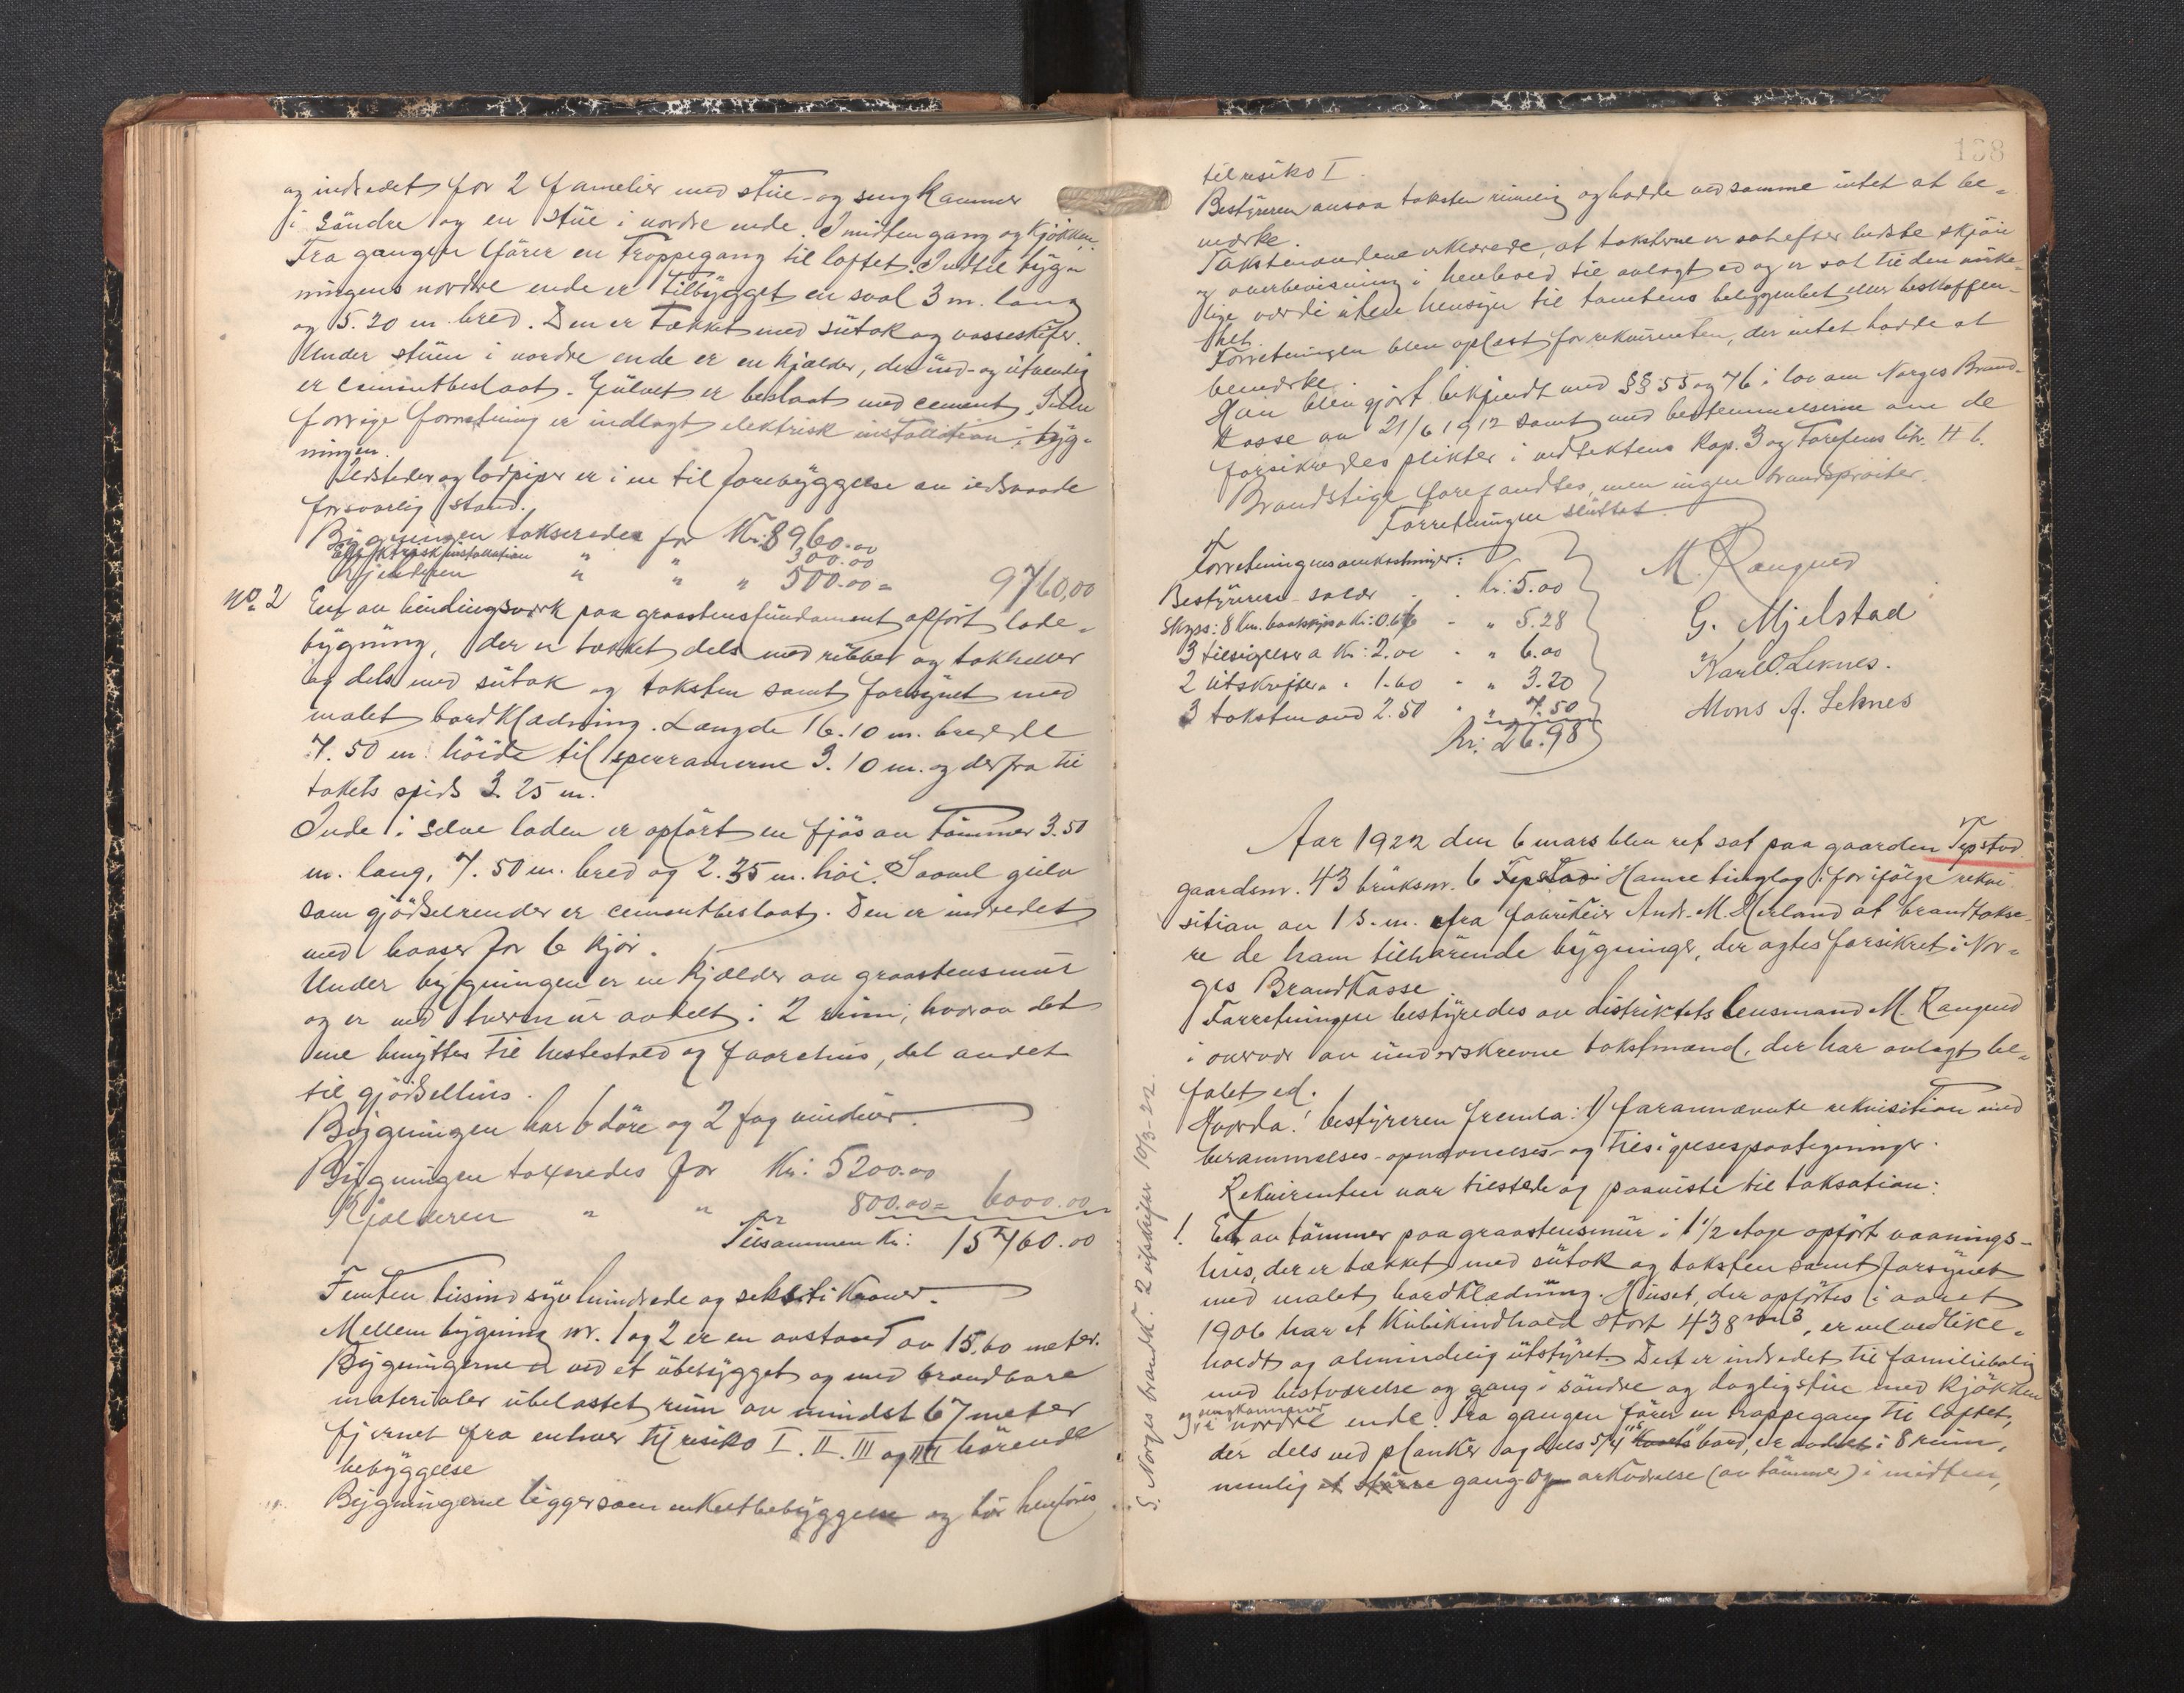 og indredet for 2 familier med stue- og sengkammer
i söndre og en stue i nordre ende. I midten gang og kjökken.
Fra gangen förer en trappegang til loftet. Indtil byg-
ningens nordre ende er tilbygget en sval 3 m. lang
og 5.20 m. bred. Den er tækket med sutak og vosseskifer.
Under stuen i nordre ende er en kjælder, der ind- og utvendig
er cementbeslaat. Gulvet er beslaat med cement. Siden
forrige forretning er indlagt elektrisk installation i byg-
ningen.
Ildsteder og lodpiper er i en til forebyggelse av ildsvaade
forsvarlig stand.
Bygningen takseredes for Kr: 8960.00
Elektrisk installation " " 300.00
Kjælderen " " " 500.00 = 9760,00
No. 2 En av bindingsverk paa graastensfundament opfört lade-
bygning, der er tækket dels med ribber og takheller
og dels med sutak og taksten samt forsynet med
malet bordklædning. Længde 16.10 m. bredde
7.50 m. höide til sperrarmerne 3.10 m. og derfra til
takets spids 3.25 m.
Inde i selve laden er opfört en fjös av tömmer 3.50
m. lang, 7.50 m. bred og 2.35 m. höi. Saavel gulv
som gjödselrender er cementbeslaat. Den er indredet
med baaser for 6 kjör.
Under bygningen er en kjælder av graastensmur
og er ved tvermur avdelt i 2 rum, hvorav det
ene benyttes til hestestald og faarehus, det andet
til gjödselhus.
Bygningen har 6 döre og 2 fag vinduer.
Bygningen taxeredes for Kr: 5200.00
Kjælderen " " " 800.00 = 6000.00
Tilsammen Kr: 15760.00
Femten tusind syv hundrede og seksti Kroner.
Mellem bygning nr. 1 og 2 er en avstand av 15.60 meter.
Bygningerne er ved et ubebygget og med brandbare
materialer ubelastet rum av mindst 67 meter
fjernet fra enhver til risiko I. II. III og IIII hörende
bebyggelse
Bygningerne ligger som enkeltbebyggelse og bör henföres
138
til risiko I.
Bestyreren ansaa taksten rimelig og hadde ved samme intet at be-
merke.
Takstmændene erklærede, at taksterne er sat efter bedste skjön
og overbevisning i henhold til avlagt ed og er sat til den virke-
lige værdi uten hensyn til tomtens beliggenhet eller beskaffen-
het.
Forretningen blev oplæst for rekvirenten, der intet hadde at
bemerke.
Han blev gjort bekjendt med §§ 55 og 76 i lov om Norges Brand-
kasse av 21/6 1912 samt med bestemmelserne om de
forsikredes plikter i vedtektens Kap. 3 og Tarefens litr. H b.
Brandstige forefandtes, men ingen brandspröiter.
Forretningen sluttet
Forretningens omkostninger:
Bestyrerens salær . . Kr: 5.00
Skyss: 8 km. baatskyss a Kr: 0.66 - " 5.28
3 tilsigelser a Kr: 2.00 - " 6.00
2 utskrifter " " 1.60 - " 3.20
3 takstmænd 2.50 " " 7.50
Kr: 26.98
M. Rangnes
G. Mjelstad
Karl O. Leknes.
Mons A. Leknes
Aar 1922 den 6 mars blev ret sat paa gaarden Tepstad
gaardsnr. 43 bruksnr. 6 Tepstad i Hamre tinglag for ifölge rekvi-
sition av 1 s.m. fra fabrikeier Andr. M. Herland at brandtakse-
re de ham tilhörende bygninger, der agtes forsikret i Nor-
ges Brandkasse
Forretningen bestyredes av distriktets lensmand M. Rangnes
i overvær av underskrevne takstmænd, der har avlagt be-
falet ed.
Hvorda! bestyreren fremla: 1) forannævnte rekvisition med
berammelses- opnævnelses- og tilsigelsespaategninger.
Rekvirenten var tilstede og paaviste til taksation:
1. Et av tömmer paa graastensmur i 1 1/2 etage opfört vaanings-
hus, der er tækket med sutak og taksten samt forsynet
med malet bordklædning. Huset, der opförtes i aaret
1906 har et kubikindhold stort 438 m3, er vel vedlike-
holdt og almindelig utstyret. Det er indredet til familiebolig
med bestværelse og gang i söndre og dagligstue med kjökken
og sengkammer i nordre ende. Fra gangen förer en trappegang til loftet,
der dels ved planker og dels 5/4" bord, er avdelt i 8 rum,
nemlig gang og arkværelse (av tömmer) i midten,
G. Norges brandk. 2 utskrifter 10/3-22.